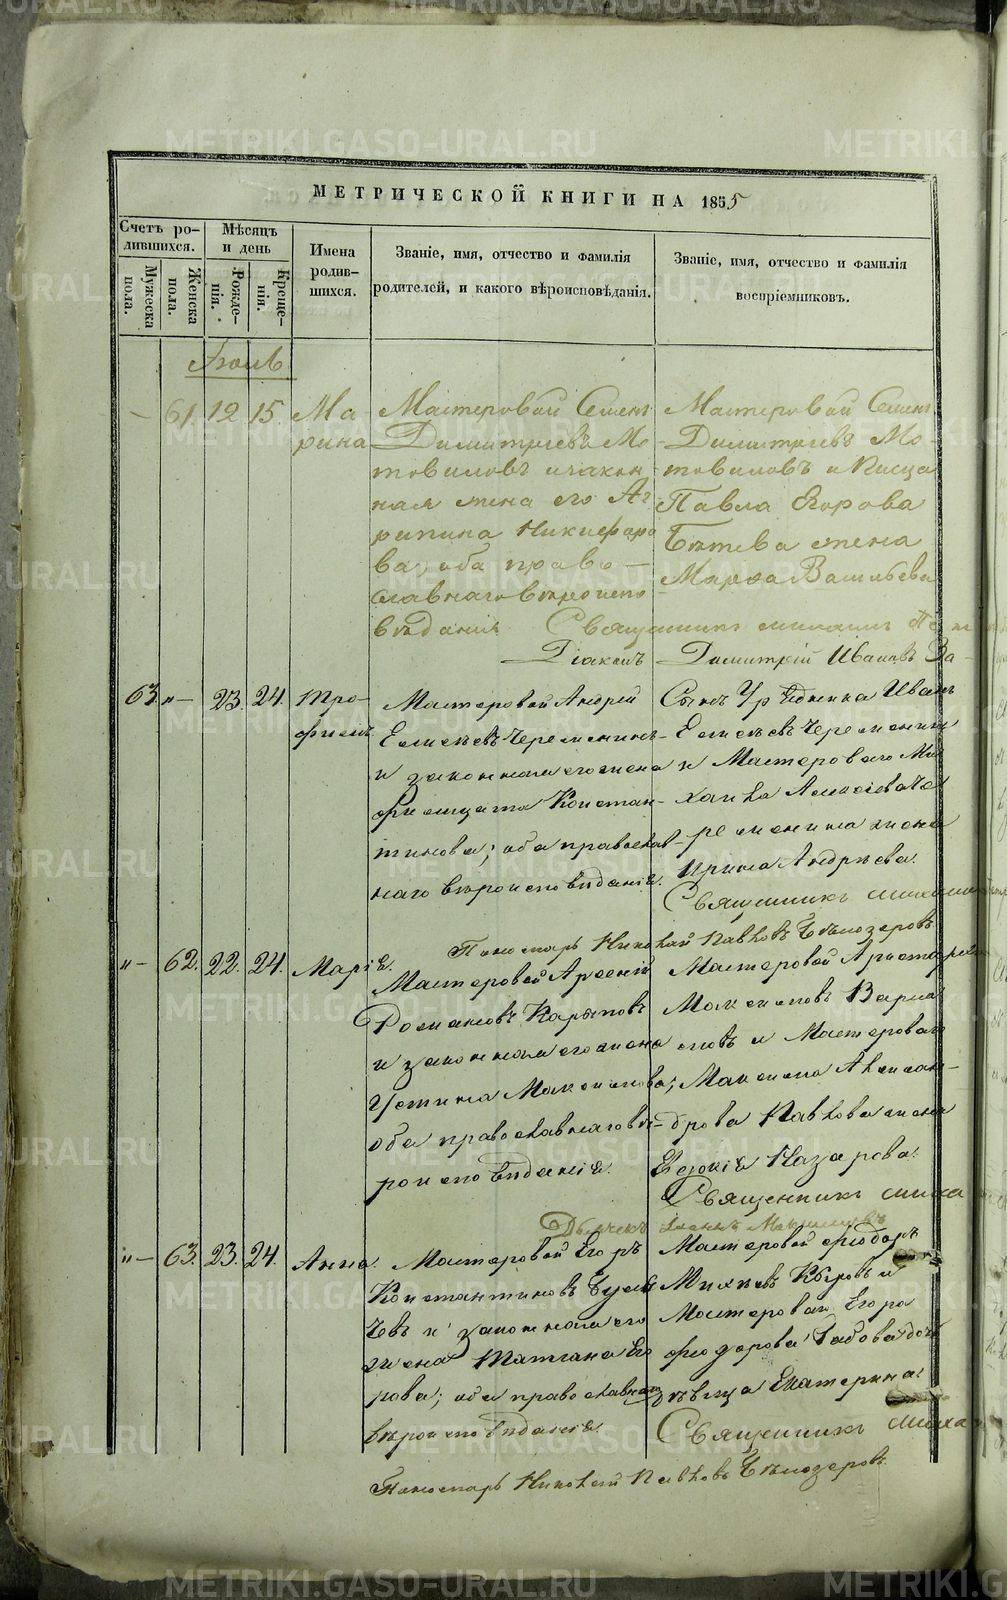 МЕТРИЧЕСКОЙ КНИГИ НА 1855
Счетъ ро-
дившихся.
Мужеска
пола.
Женска
пола.
Мѣсяцъ
и день
Рожде-
нія.
Креще-
нія.
Имена
родив-
шихся.
Званіе, имя, отчество и фамилія
родителей, и какого вѣроисповѣданія.
Званіе, имя, отчество и фамилія
воспріемниковъ.
Іюль
— 61. 12 15. Ма-
рина
Мастеровой Семенъ
Димитріевъ Мо-
товиловъ и закон-
ная жена его Аг-
рипина Никифоро
ва, оба право—
славнаго вѣроиспо
вѣданія
Мастеровой Семенъ
Димитріевъ Мо-
товиловъ и Писца
Павла Егорова
жена
Марѳа Васильева
Священникъ Михаилъ
Діаконъ Димитрій Ивановъ
63. "— 23. 24. Тро-
фимъ
Мастеровой Андрей
Елисѣевъ Черемнинъ-
и законная его жена
Константи-
тинова; оба православ-
наго вѣроисповѣданія.
Сынъ Урядника Иванъ
Елисѣевъ
и Мастероваго Ми-
хаила Алексѣева Че-
жена
Ирина Андрѣева.
Священникъ Михаилъ
Пономарь Николай Павловъ Бѣлозеровъ
"— 62. 22. 24. Марія.
Мастеровой Арсеній
Романовъ Карповъ
и законная его жена
Устина Максимова;
оба православнаго вѣ-
роисповѣданія.
Мастеровой
Максимовъ
и Мастероваго
Максима Алексан-
дрова Павлова жена
Назарова.
Священникъ Миха
"— 63. 23. 24. Анна.
Мастеровой Егоръ
Константиновъ
и законная его
жена Татіана Его
рова; оба православнаго
вѣроисповѣданія.
Мастеровой Ѳедоръ
и
Мастероваго Егора
Ѳедорова
дѣвица Екатерина.
Священникъ Миха
Пономарь Николай Павловъ Бѣлозеровъ
METRIKI.GASO-URAL.RU